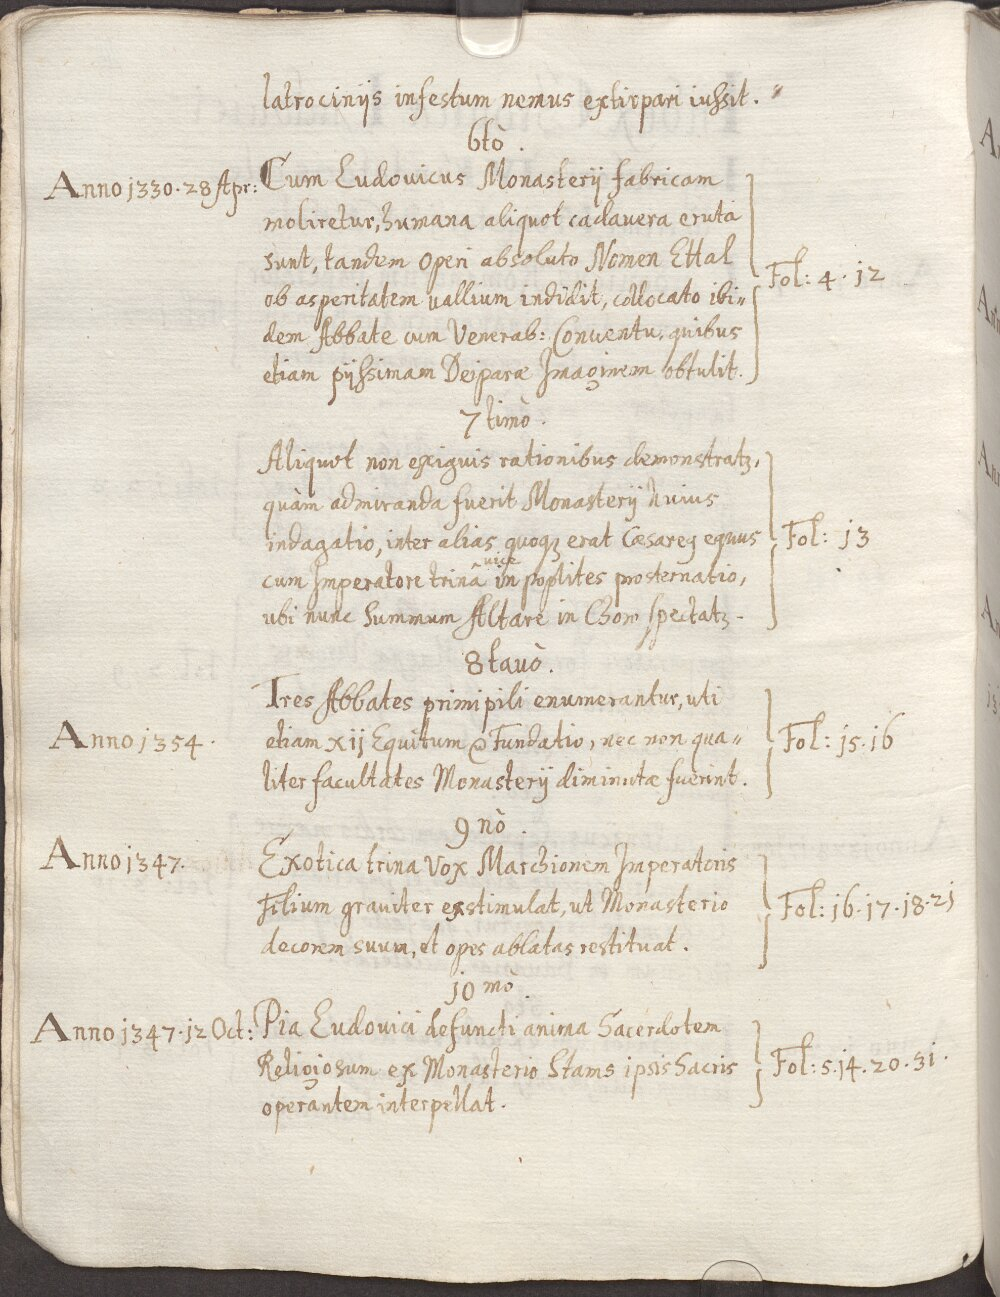 latrocinijs infestum nemus extirpari iussit.
6tò.
Anno 1330. 28 Apr: Cum Ludovicus Monasterij fabricam
moliretur, humana aliquot cadavera eruta
sunt, tandem operi absoluto Nomen Ettal
Fol: 4. 12
ob asperitatem vallium indidit, collocato ibi=
dem Abbate cum Venerab: Conventu, quibus
etiam pijssimam Deiparæ Imaginem obtulit.
7timò.
Aliquot non exiguis rationibus demonstratꝫ,
quàm admiranda fuerit Monasterij huius
indagatio, inter alias quoqꝫ erat Cæsarey equus
Fol: 13
cum Imperatore trinâ vice in poplites prosternatio,
ubi nunc Summum Altare in Choro spectatꝫ.
8tavò.
Tres Abbates primipili enumerantur, uti
Anno 1354. etiam xij Equitum Fundatio, nec non qua=
Fol: 15. 16
liter facultates Monasterij diminutæ fuerint.
9nò.
Anno 1347. Exotica trina Vox Marchionem Imperatoris
Filium graviter exstimulat, ut Monasterio
Fol: 16. 17. 18. 21
decorem suum, et opes ablatas restituat.
10mò
Anno 1347. 12 Oct: Pia Ludovici defuncti anima Sacerdotem
Religiosum ex Monasterio Stams ipsis Sacris
Fol: 5. 14. 20. 31.
operantem interpellat.